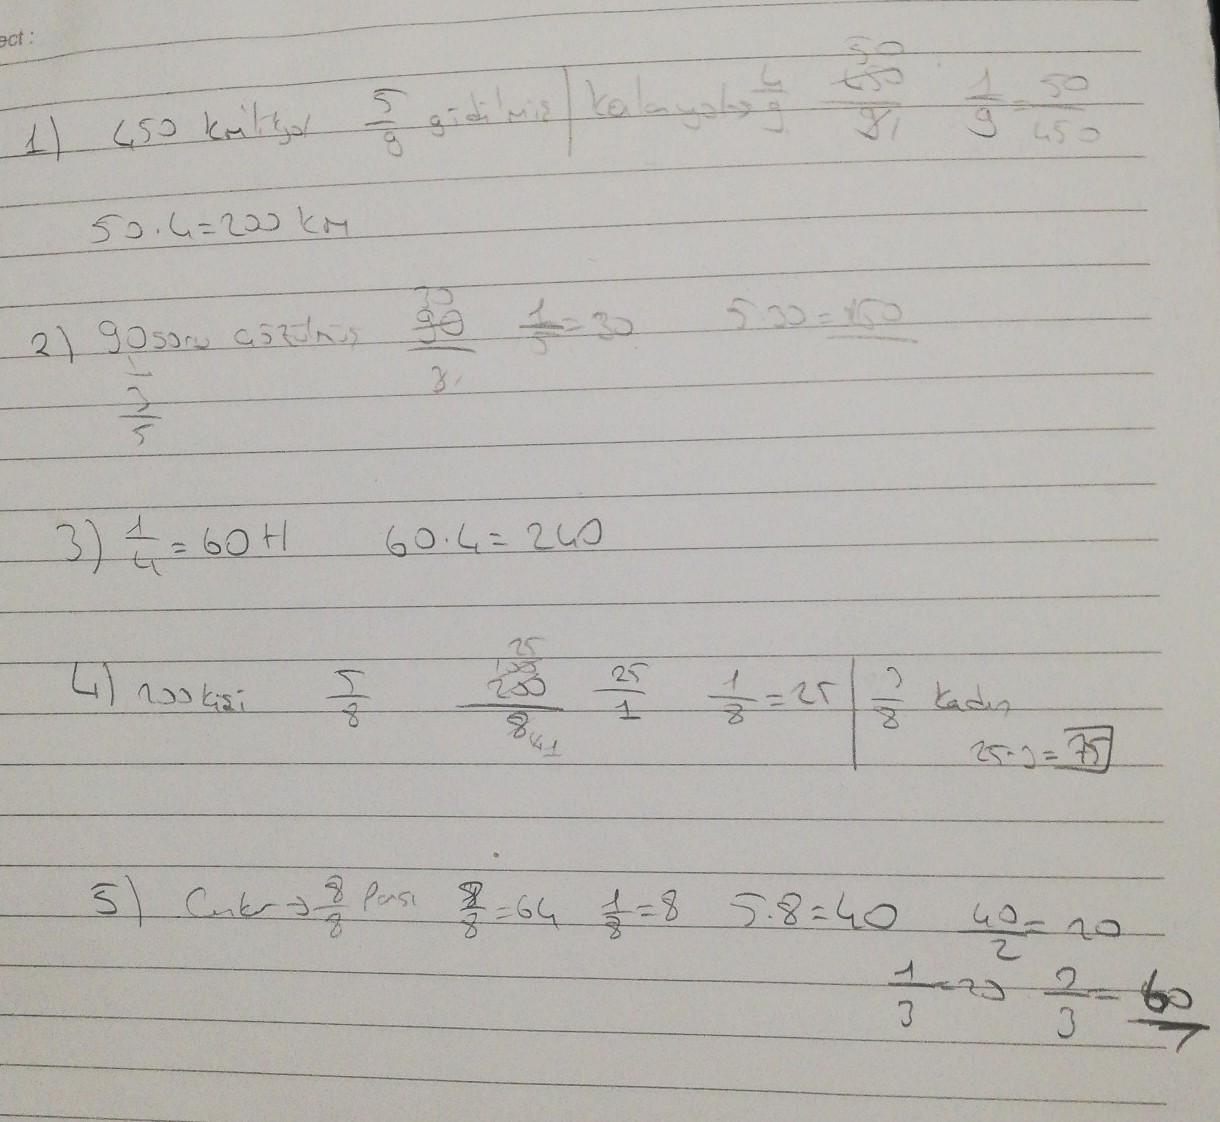 ect:
1) 450 km'lik yol 5/9 gidilmiş | kalan yol → 4/9 450/9 50 1 1/9 = 50/450
50.4=200 km
2) 90 soru çözülmüş 90/3 30 1/5=30 5.30=150
3/5
3) 1/4 = 60 H 60.4=240
4) 200 kişi 5/8 200/8 100 25 4 1 25/1 1/8=25 | 3/8 kadın
25.3=75
5) → 8/8 8/8=64 1/8=8 5.8=40 40/2=20
1/3=20 3/3=60